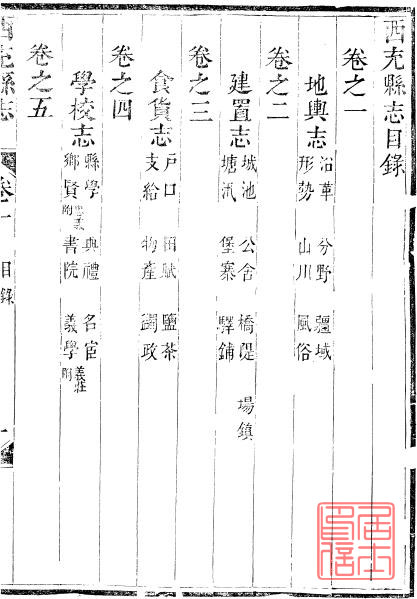 西充縣志目錄
卷之一
地輿志
沿革 分野 疆域
形勢 山川 風俗
卷之二
建置志
城池 公舍 橋隄 場鎮
塘汛 堡寨 驛鋪
卷之三
食貨志
戶口 田賦 鹽茶
支給 物產 蠲政
卷之四
學校志
縣學 典禮 名宦
鄉賢 忠義附 書院 義學 義莊附
卷之五
西充縣志 目錄